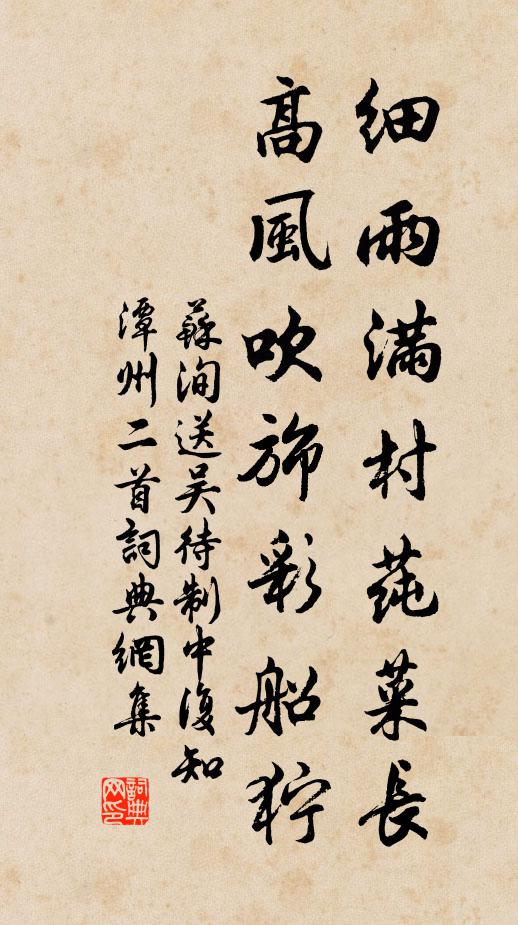 細雨滿村蓴菜長
高風吹旆彩船狞
蘇洵送吴待制中復知
潭州二首詞典網集
詞典网印